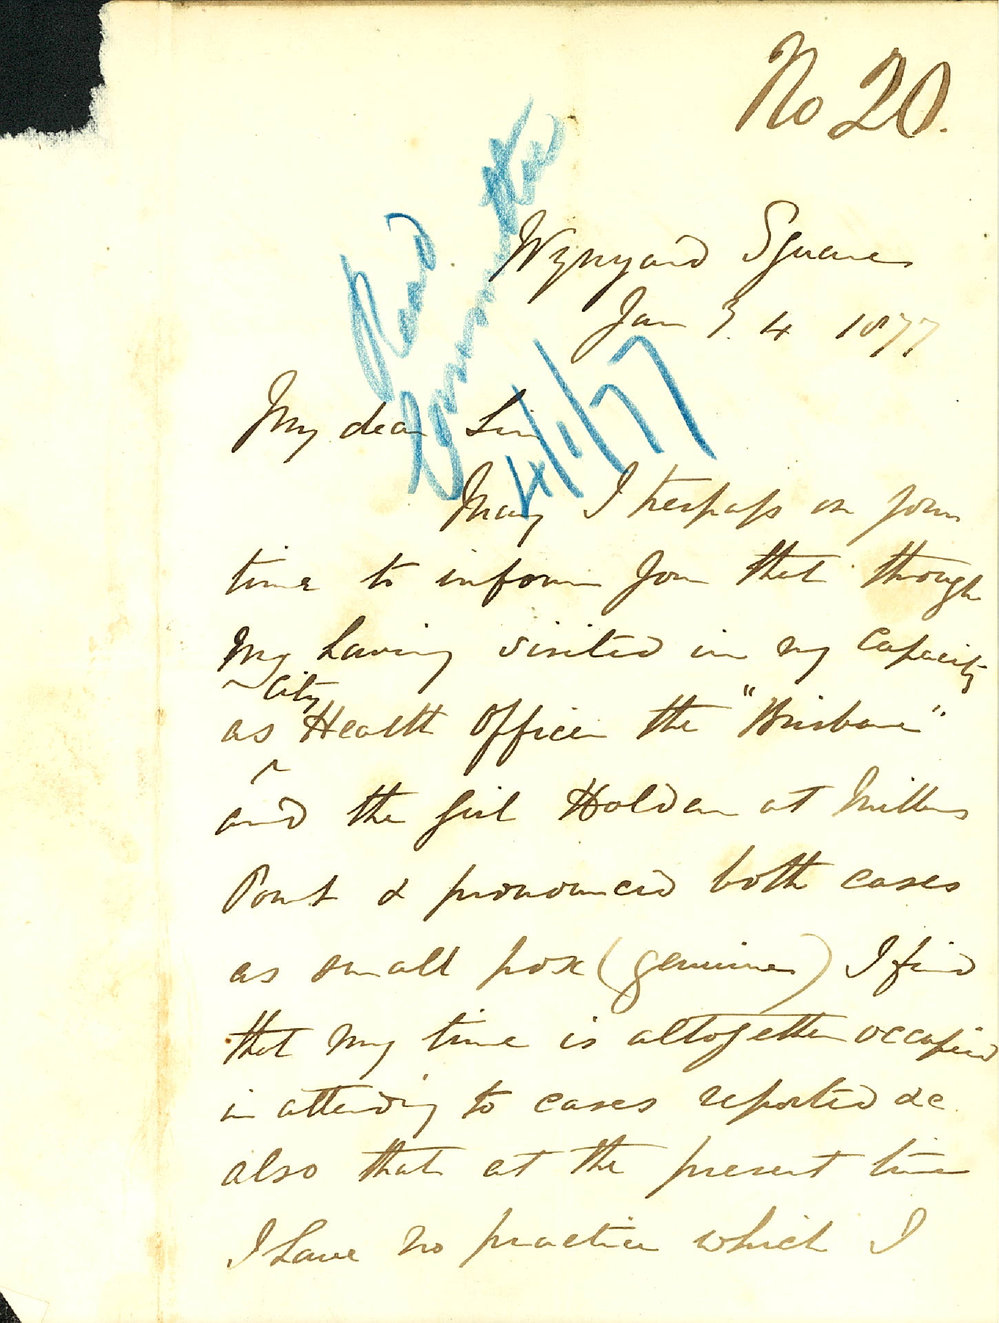 No 20.
Read
Committee
4/1/77
Wynyard Square
Jan 4 1877
My dear Sir
May I trespass on your
time to inform you that through
my having visited in my capacity
as City Health Officer the "Brisbane"
and the girl Holden at Millers
Point & pronounced both cases
as small pox (genuine) I find
that my time is altogether occupied
in attending to cases reported &c
also that at the present time
I have no practice which I